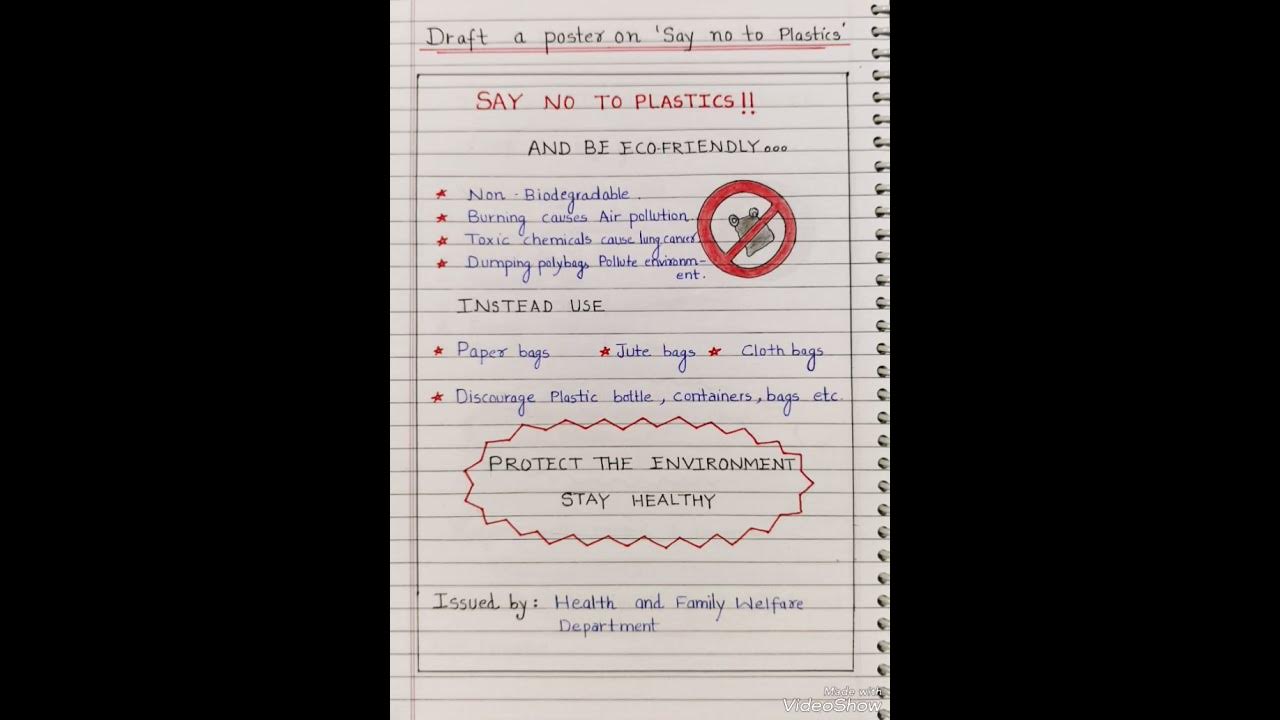 Draft a poster on 'Say no to Plastics'
SAY NO TO PLASTICS!!
AND BE ECO-FRIENDLY...
★ Non-Biodegradable.
★ Burning causes Air pollution.
★ Toxic chemicals cause lung cancer.
★ Dumping polybags Pollute environm-
ent.
INSTEAD USE
★ Paper bags ★ Jute bags ★ Cloth bags
★ Discourage Plastic bottle, containers, bags etc.
PROTECT THE ENVIRONMENT
STAY HEALTHY
Issued by: Health and Family Welfare
Department
Made with
VideoShow